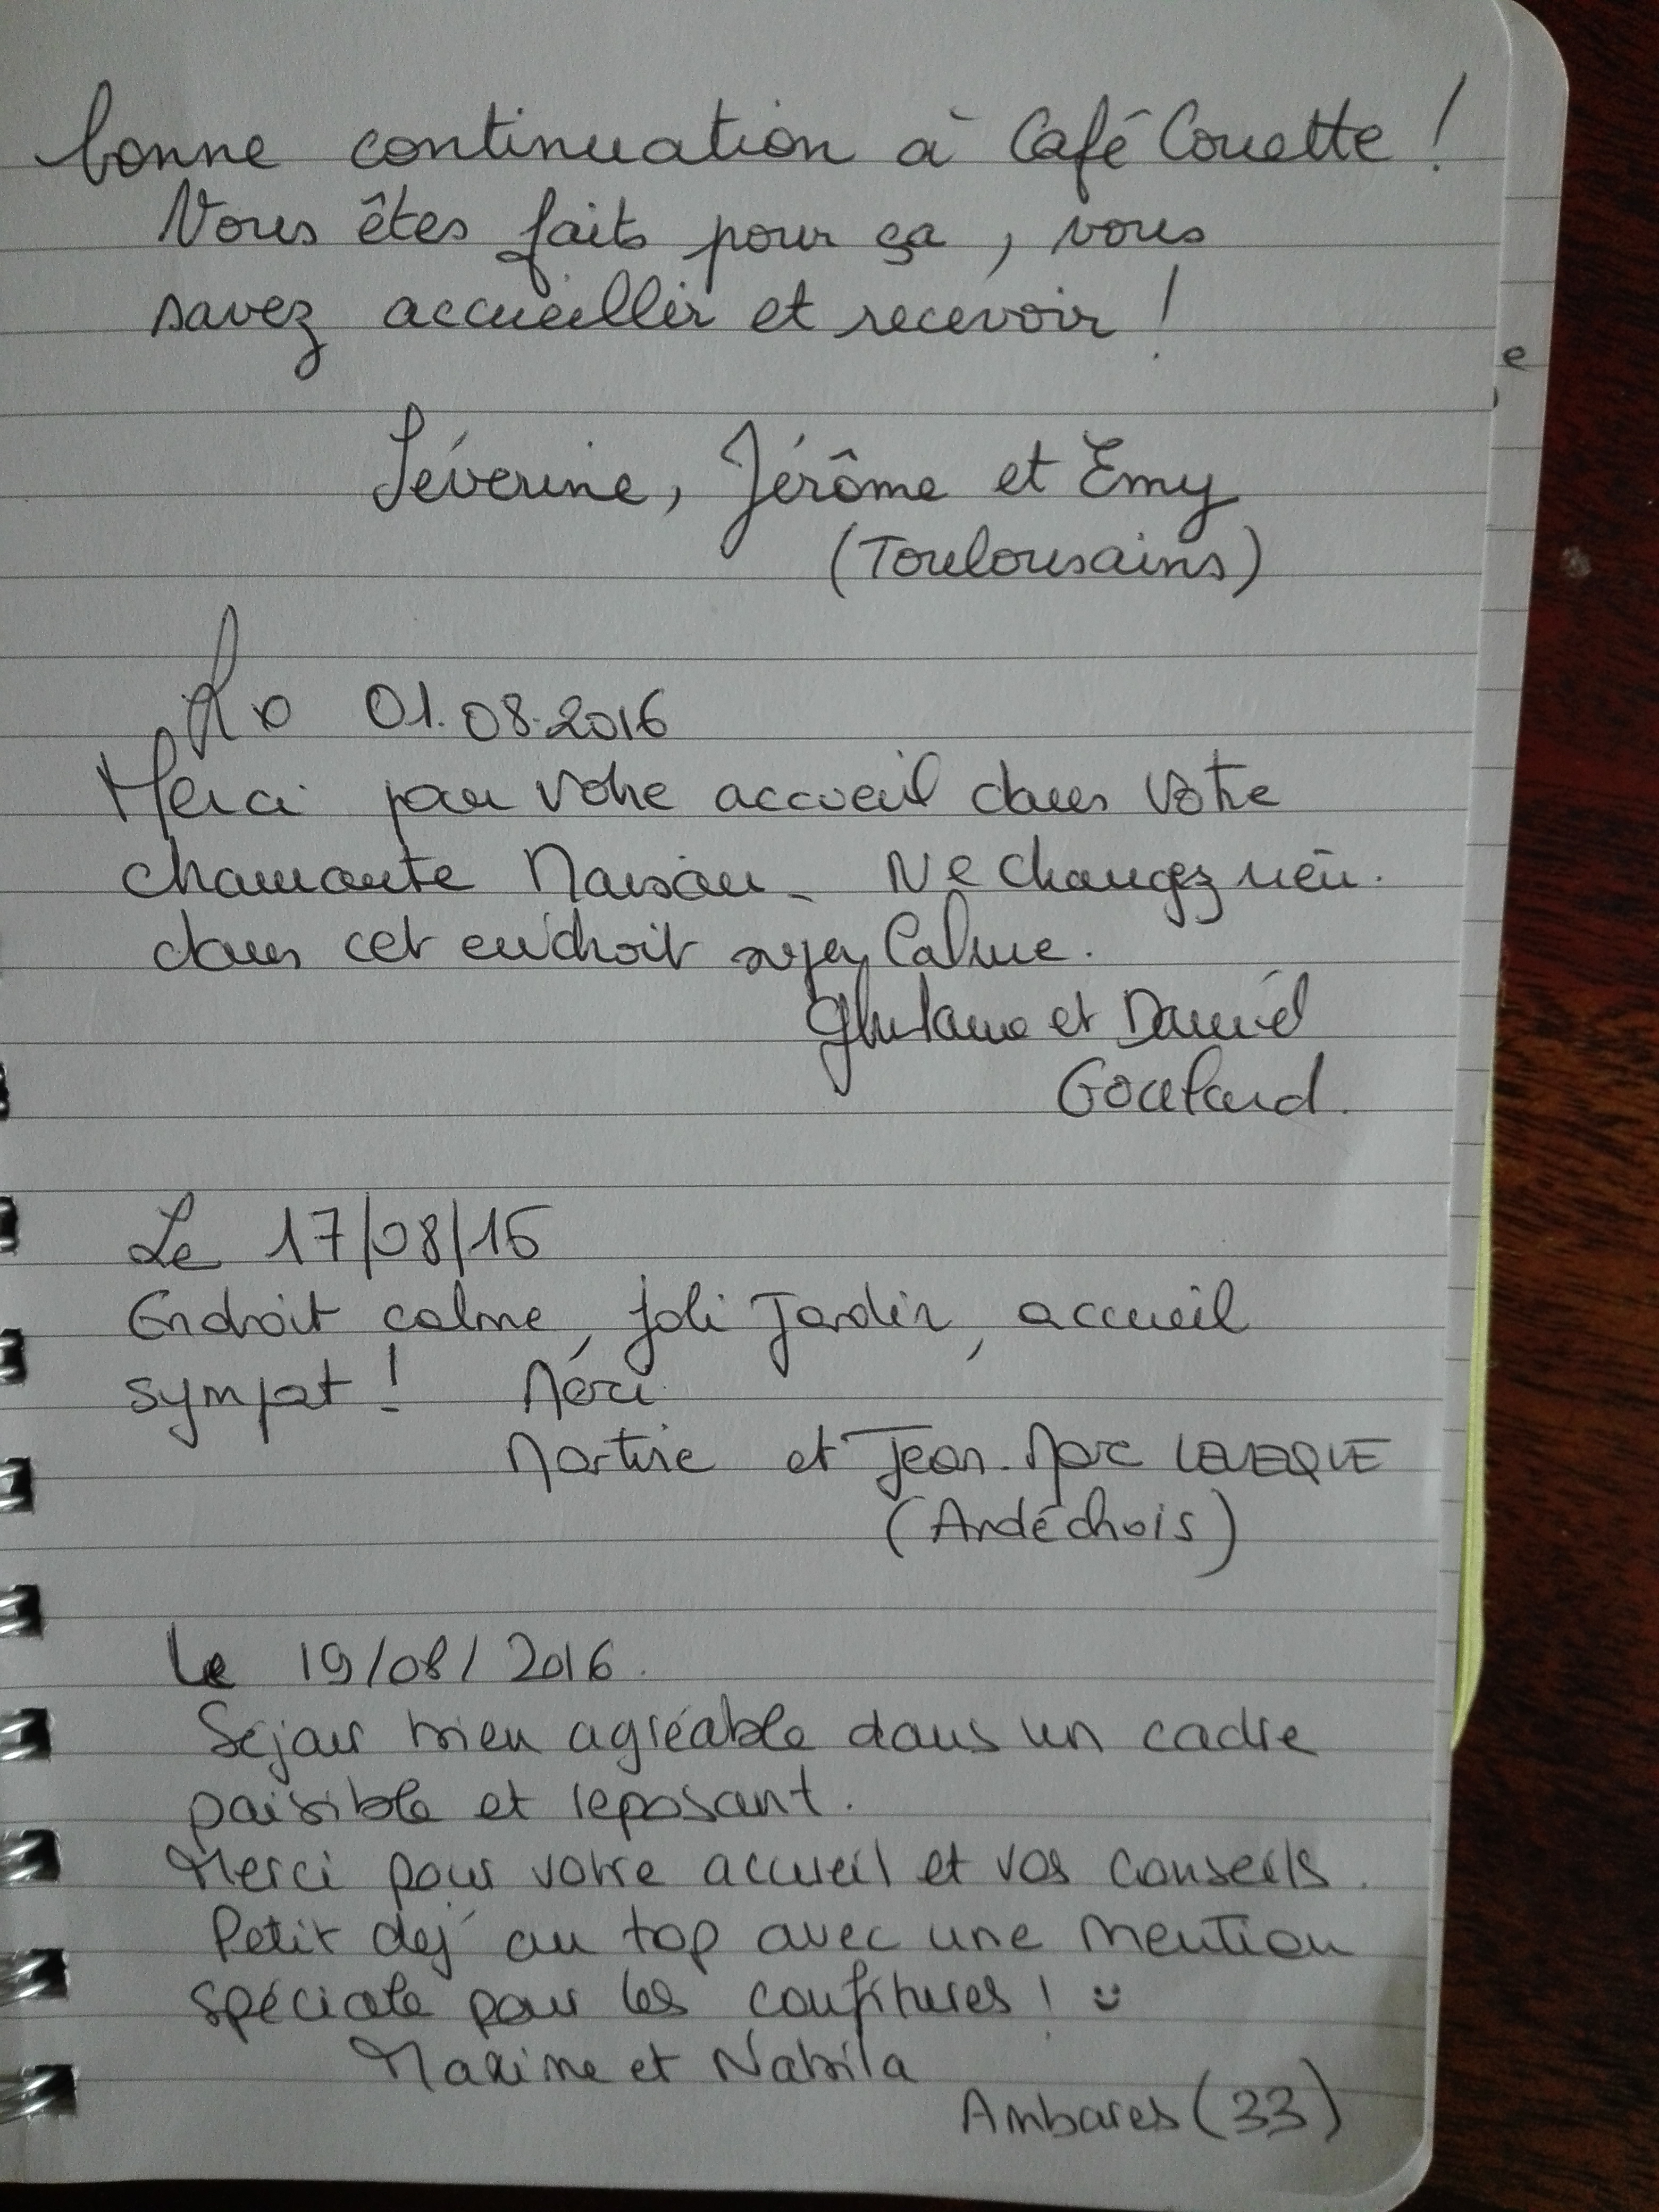 bonne continuation à Café Couette !
Vous êtes faits pour ça, vous
savez accueillir et recevoir !
Séverine, Jérôme et Emy
(Toulousains)
Le 01.08.2016
Merci pour votre accueil dans votre
charmante Maison. Ne changez rien.
dans cet endroit super Calme.
Ghislaine et Daniel
Le 17/08/16
Endroit calme, joli Jardin, accueil
sympat ! Merci
Martine et Jean-Marc LEVEQUE
(Ardéchois)
Le 19/08/2016.
Séjour bien agréable dans un cadre
paisible et reposant.
Merci pour votre accueil et vos conseils.
Petit dej' au top avec une mention
spéciale pour les confitures ! :)
Maxime et Nabila
Ambares (33)
e